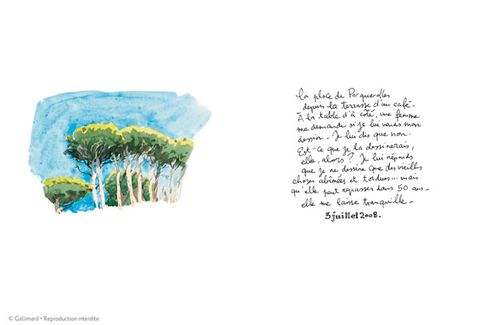 La place de Porquerolles
depuis la terrasse d'un café.
À la table d'à côté, une femme
me demande si je lui vends mon
dessin. Je lui dis que non.
Est-ce que je la dessinerais,
elle, alors ? Je lui réponds
que je ne dessine que des vieilles
choses abîmées et tordues... mais
qu'elle peut repasser dans 50 ans.
elle me laisse tranquille.
3 juillet 2008.
© Gallimard • Reproduction interdite